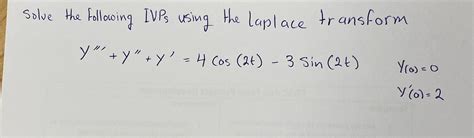 Solve the following IVPs using the Laplace transform
y''' + y'' + y' = 4 cos (2t) - 3 Sin (2t)
y(0) = 0
y'(0) = 2